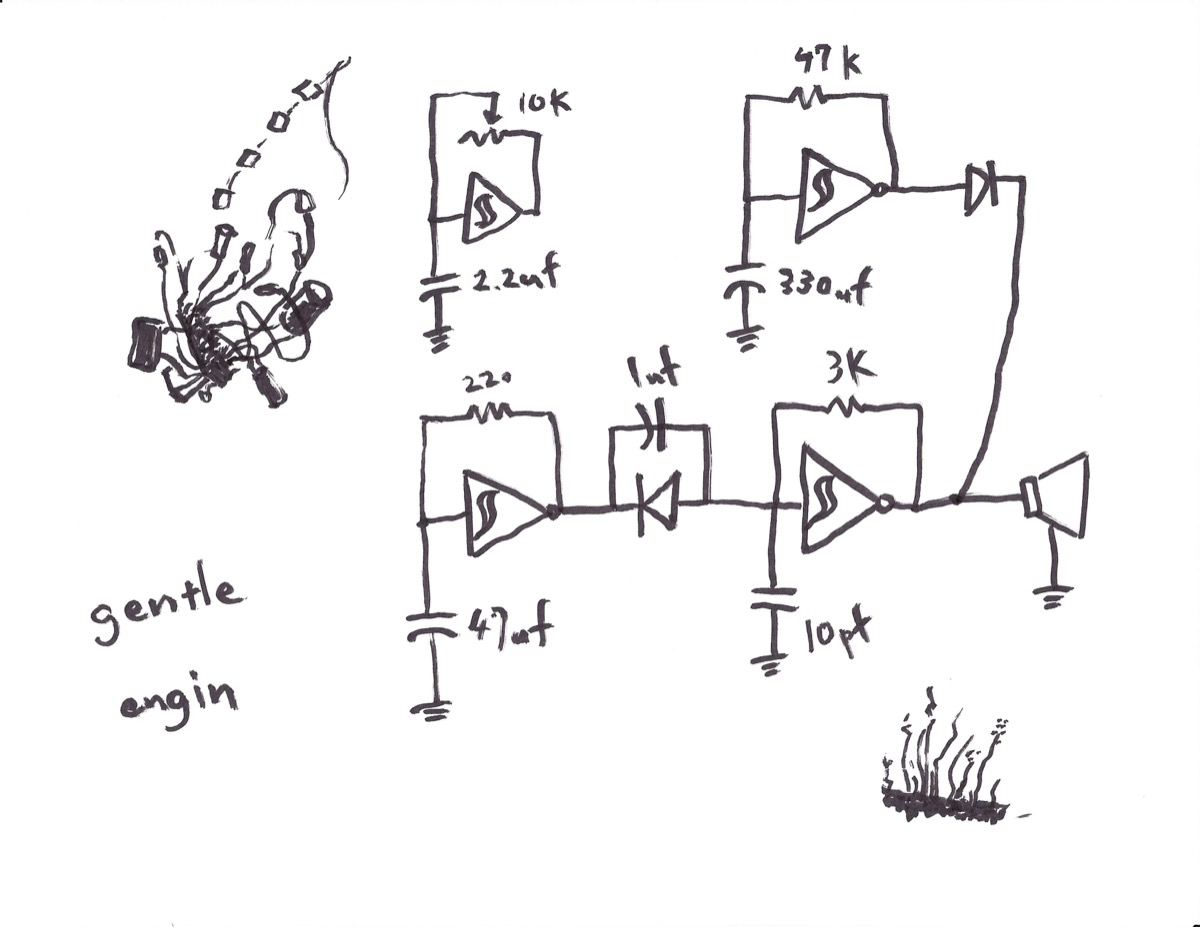 47k
10K
2.2uf
330uf
220
1uf
3K
47uf
10pf
gentle
engin